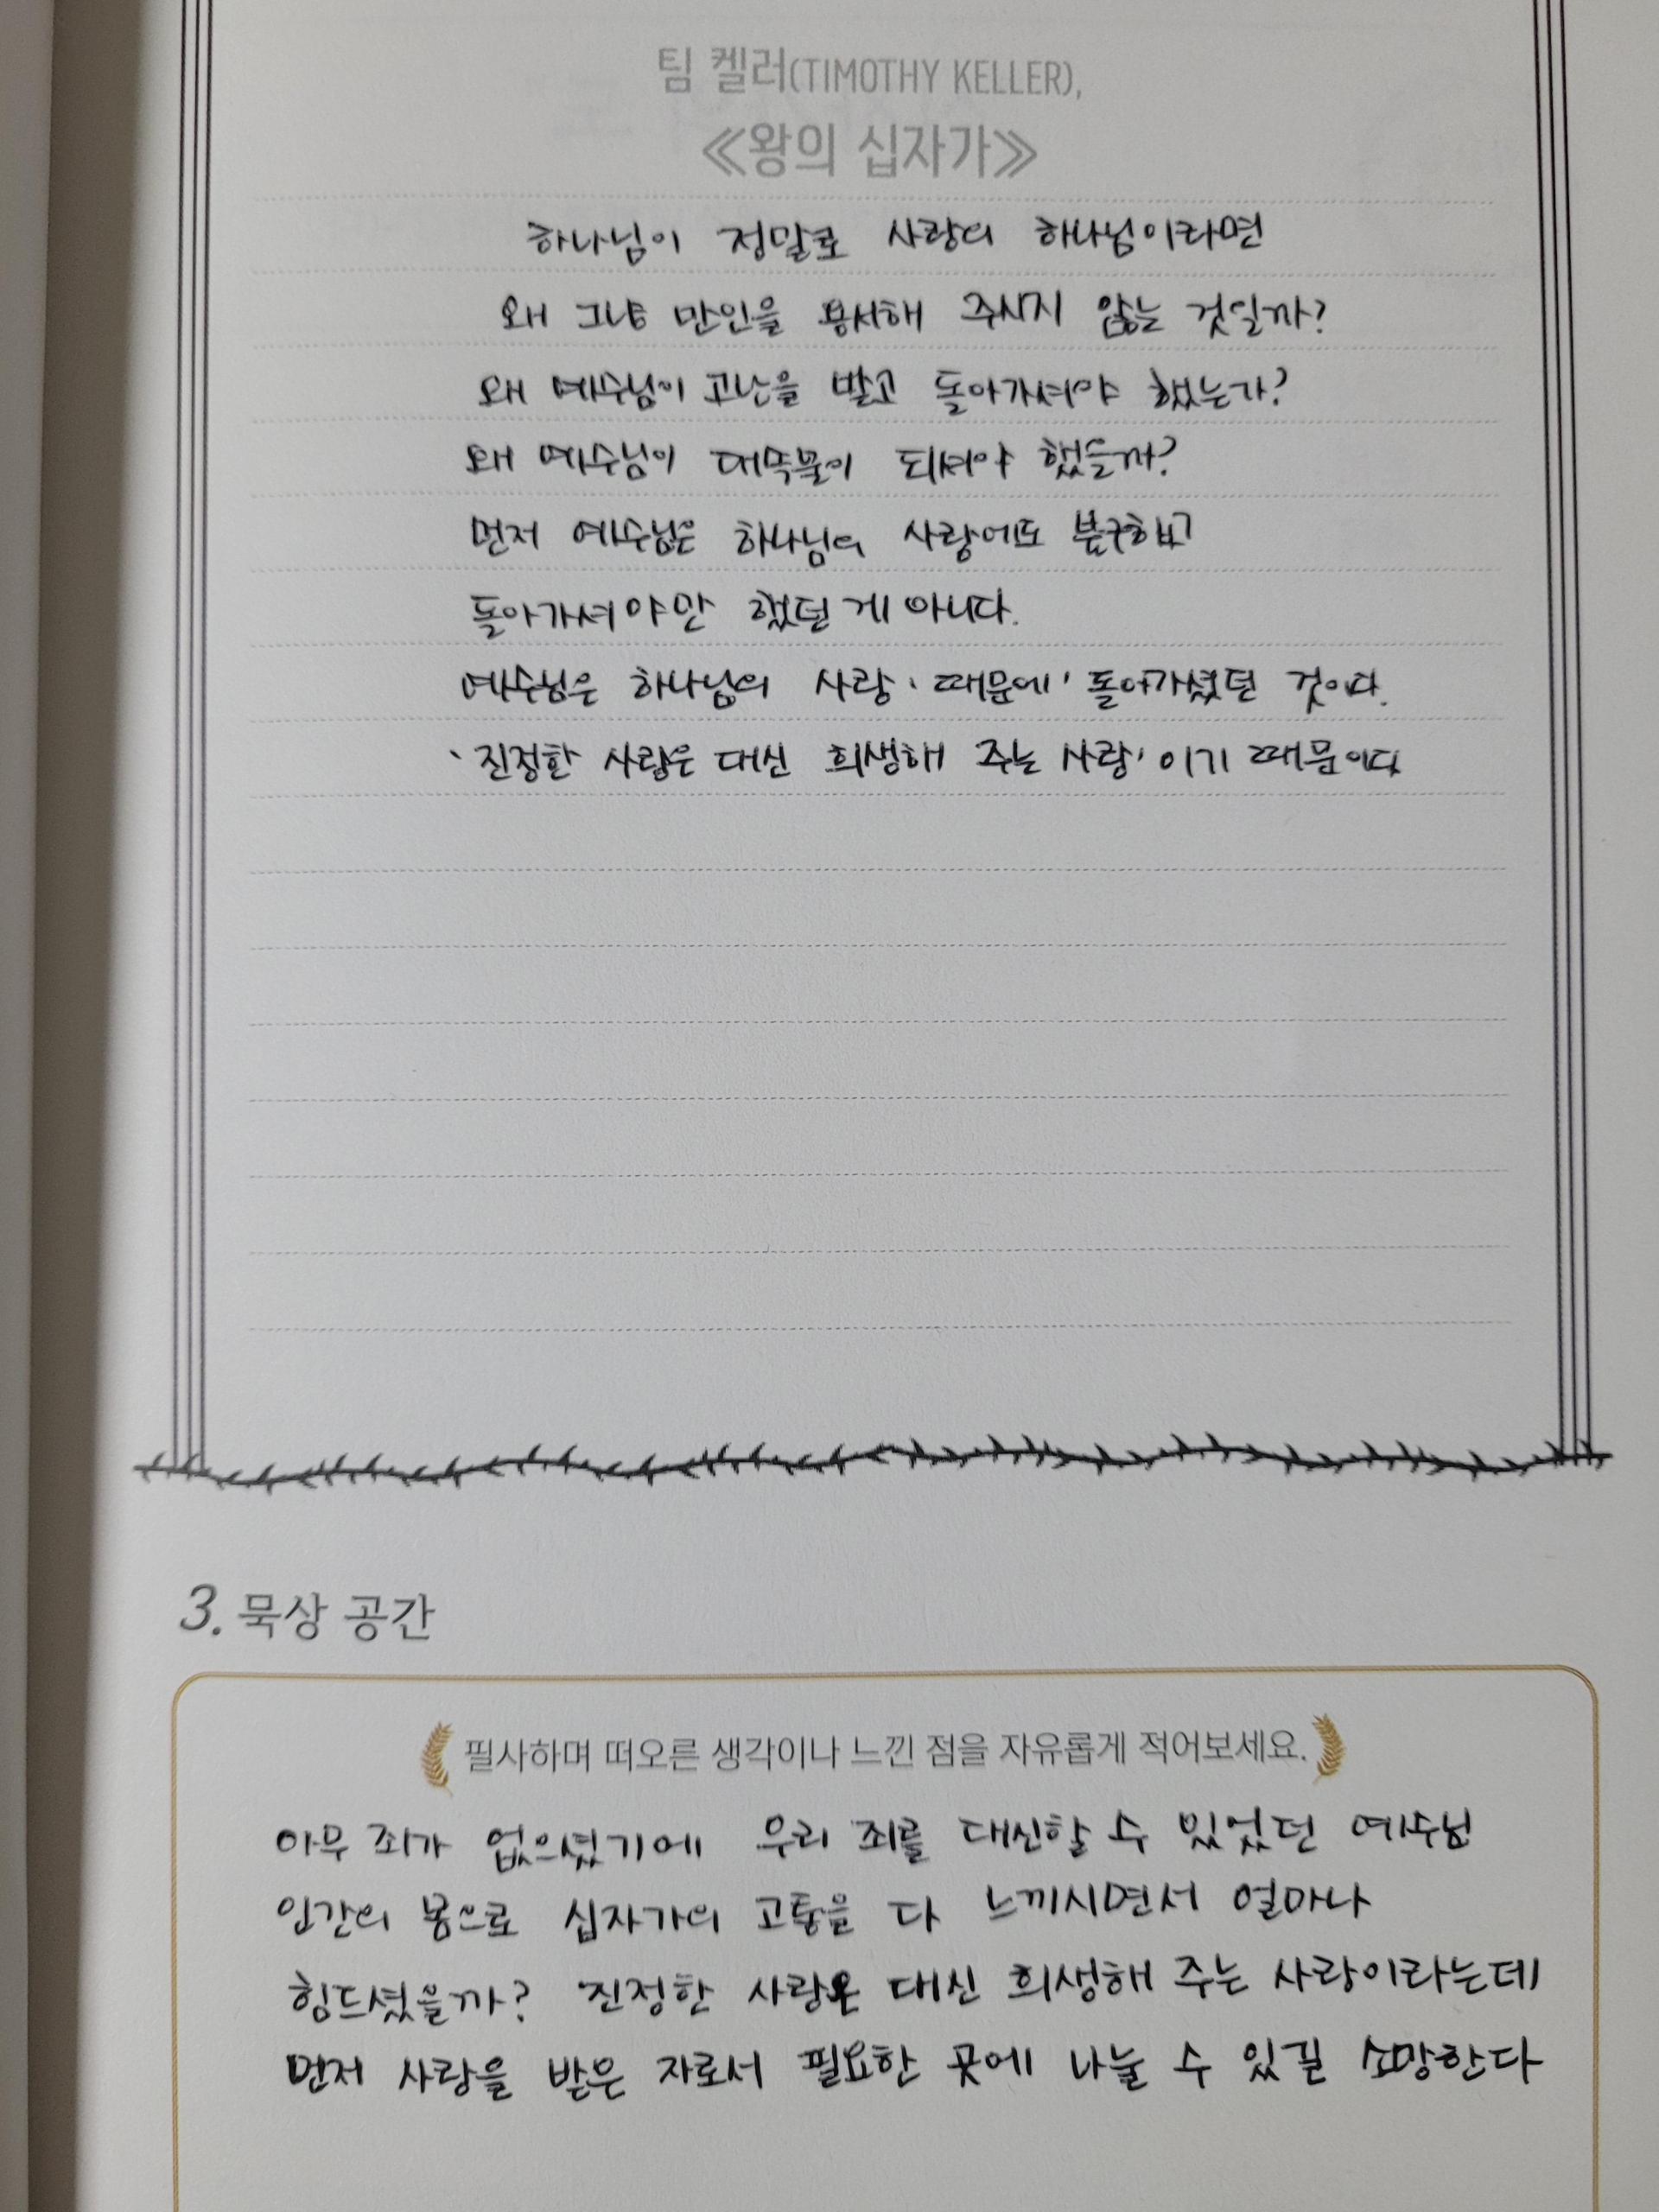 팀 켈러(TIMOTHY KELLER),
≪왕의 십자가≫
하나님이 정말로 사랑의 하나님이라면
왜 그냥 만인을 용서해 주시지 않는 것일까?
왜 예수님이 고난을 받고 돌아가셔야 했는가?
왜 예수님이 대속물이 되셔야 했을까?
먼저 예수님은 하나님의 사랑에도 불구하고
돌아가셔야만 했던 게 아니다.
예수님은 하나님의 사랑 '때문에' 돌아가셨던 것이다.
'진정한 사랑은 대신 희생해 주는 사랑'이기 때문이다
3. 묵상 공간
필사하며 떠오른 생각이나 느낀 점을 자유롭게 적어보세요.
아무 죄가 없으셨기에 우리 죄를 대신할 수 있었던 예수님
인간의 몸으로 십자가의 고통을 다 느끼시면서 얼마나
힘드셨을까? 진정한 사랑은 대신 희생해 주는 사랑이라는데
먼저 사랑을 받은 자로서 필요한 곳에 나눌 수 있길 소망한다